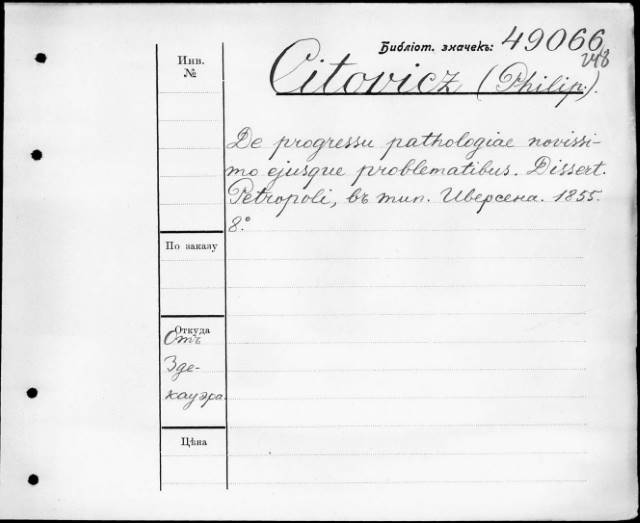 Библіот. значекъ: 49066
248
Инв.
№
Citovicz (Philip.).
De progressu pathologiae novissi-
mo ejusque problematibus. Dissert.
Petropoli, въ тип. Иверсена. 1855.
8.°
По заказу
Откуда
Отъ
Зде-
кауэра.
Цѣна